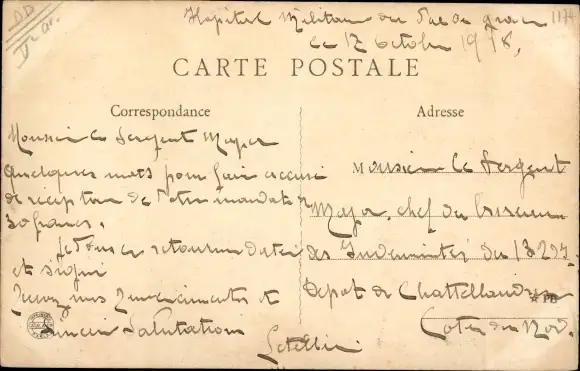 Hopital Militaire du Val de grace
le 12 octobre 1918,
1174
CARTE POSTALE
Correspondance
Adresse
Monsieur le Sergent Major
Quelques mots pour faire accusé
de réception de votre mandat
30 francs.
Je vous en retourne daté
et signé
Recevez mes remerciements et
sincères Salutations
Monsieur le Sergent
Major, chef du bureau
des Indemnités du
Depot de
Cotes du Nord.